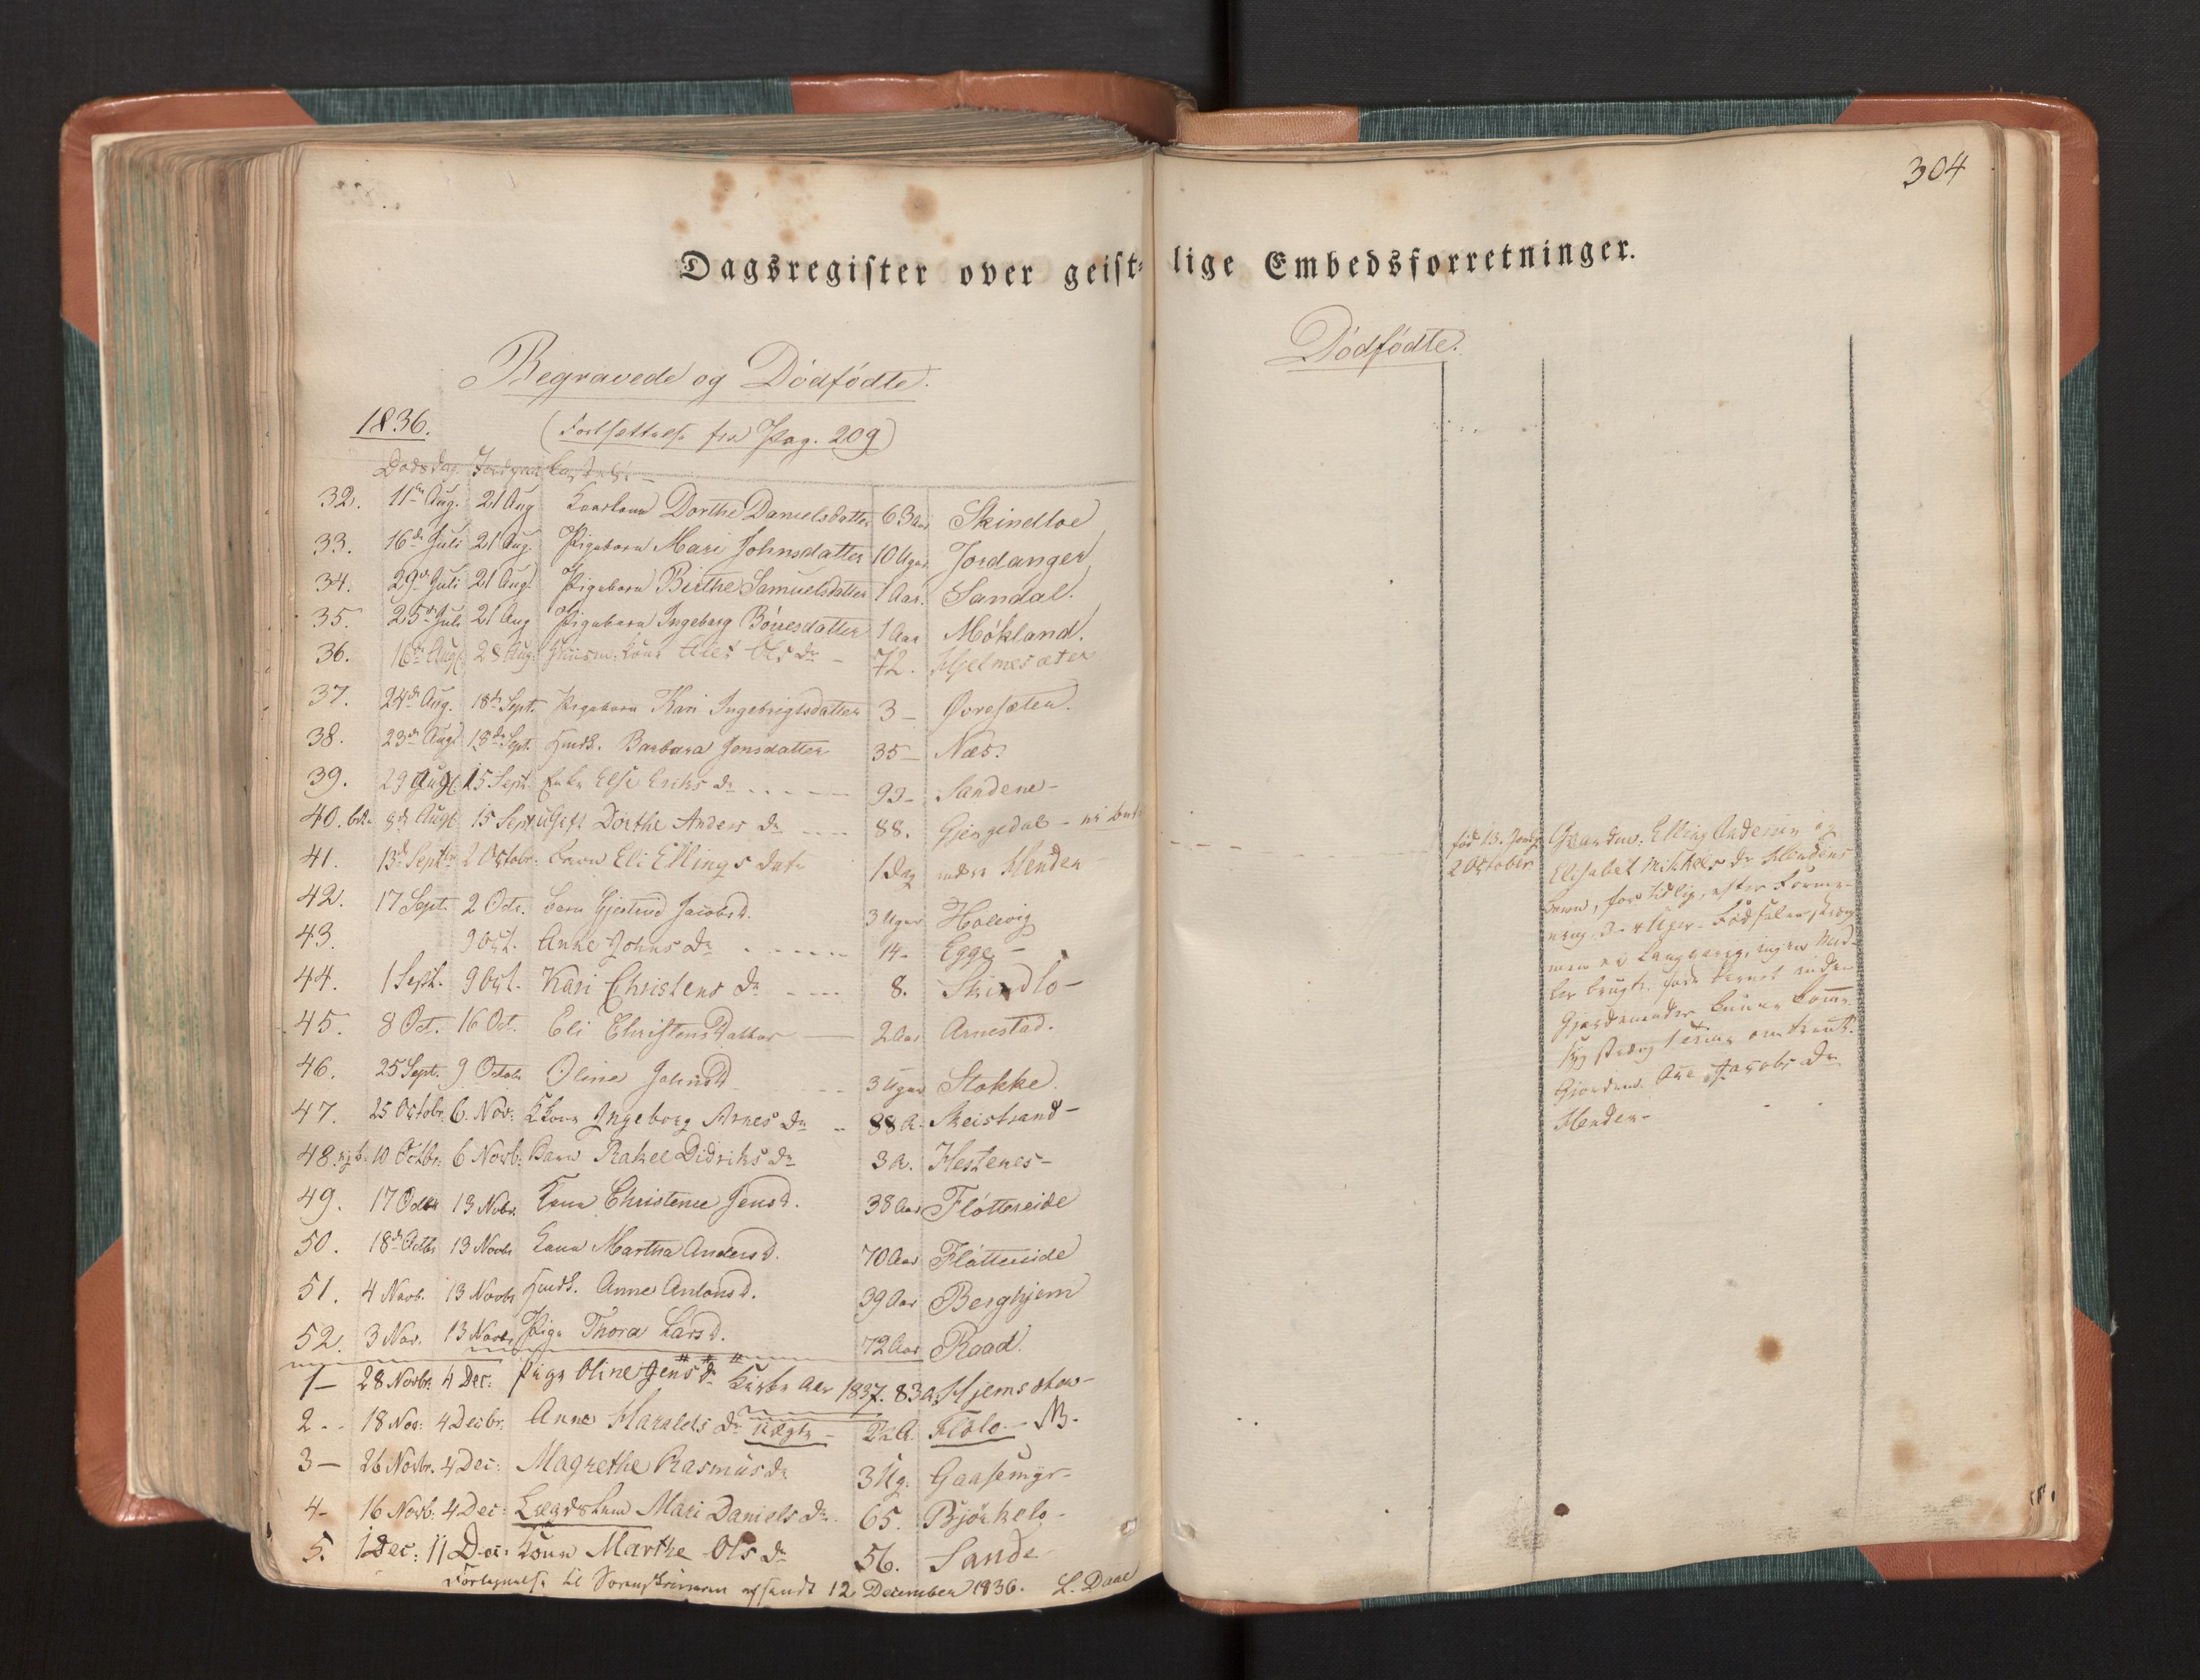 304
Dagsregister over geist- lige Embedsforretninger.
Begravede og Dödfödte.
Dödfödte.
1836.
(Fortsættelse fra Pag. 209)
Dødsdag. Jordpaakastelse
32. 11te Aug. 21 Aug Dorthe Danielsdatter 63 Aar Skindloe
33. 16de Juli 21 Aug. Pigebarn Mari Johnsdatter 10 Uger Jordanger
34. 29de Juli 21 Aug. Pigebarn Birthe Samuelsdatter 1 Aar. Sandal.
35. 25de Juli 21 Aug Pigebarn Ingeborg Börresdatter 1 Aar Mökland.
36. 16de Augt. 28 Aug: Huusm: Kone Ols dr 72. Hjelmesæter
37. 24de Aug. 18de Sept. Pigebarn Kari Ingebrigtsdatter 3 – Øvresæter.
38. 23de Augt 18de Sept. Barbara Jensdatter 35 – Næs.
39. 29 Augt. 15 Sept. Enke Else Eriks dr 93 – Sandene –
40. 8de Augt 15 Sept. ugift Dorthe Anders dr 88. Gjengedal –
41. 13de Septbr 2 Octobr: barn Eli Ellings datr 1 Dag indre Henden
42. 17 Sept. 2 Octr. barn Gjertrud Jacobsd. 3 Uger Holevig
43. 9 Oct. Anne Johns dr 14 – Egge –
44. 1 Sept. 9 Oct. Kari Christens dr 8. Skindlo –
45. 8 Oct. 16 Oct. Eli Christensdatter 2 Aar Arnestad.
46. 25 Sept. 9 Octobr Oline Johnsd. 3 Uger Stokke.
47. 25 Octobr. 6. Nov: Kone Ingeborg Arnes dr 88 A. Skeistrand –
48. 10 Octbr: 6 Novb: Barn Rakel Didriks dr 3 A. Hestenes –
49. 17 Octbr 13 Nobr. Kone Christense Jensd. 38 Aar Flöttereide
50. 18de Octbr 13 Novbr Kone Martha Andersd. 70 Aar Flöttereide
51. 4 Novb. 13 Novbr Anne Antonsd. 39 Aar Berghjem
52. 3 Nov. 13 Novbr. Pige Thora Larsd. 72 Aar Raad.
1 – 28 Novbr. 4 Dec: Pige Oline Jens dr Kirke Aar 1837. 83 A. Hjemsstow –
2 – 18 Nov: 4 Decbr: Anne Haralds dr uægte – 2½ A. Flolo – NB.
3 – 26 Novbr. 4 Dec: Magrethe Rasmus dr 3 Ug. Gaasemyr –
4 – 16 Novb: 4 Dec: Lægdslem Mari Daniels dr. 65. Björkelo –
5. 1 Dec: 11 Dec: Kone Marthe Ols dr 56. Sande
Fortegnelse til Sorenskriveren afsendt 12 December 1836. L. Daae
2 October
Elling Andersen og
Elisabet Mikkels dr Hendens
barn, for tidlig, efter
men ei langvarig, ingen Mid-
ler brugt.
Gjordemoder kunne komme.
omtrent.
Gjordem. Jacobs dr
Henden –